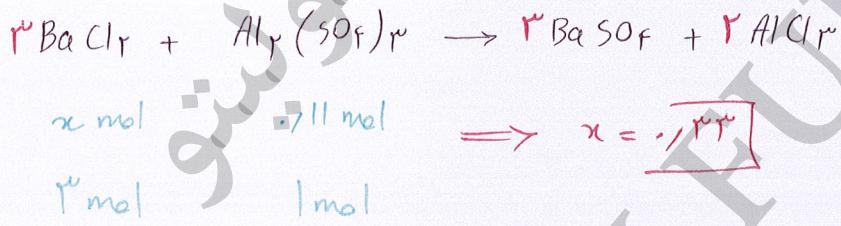 ۳BaCl۲ + Al۲(SO۴)۳ → ۳BaSO۴ + ۲AlCl۳
x mol ۰/۱۱ mol ⇒ x = ۰/۳۳
۳ mol ۱ mol